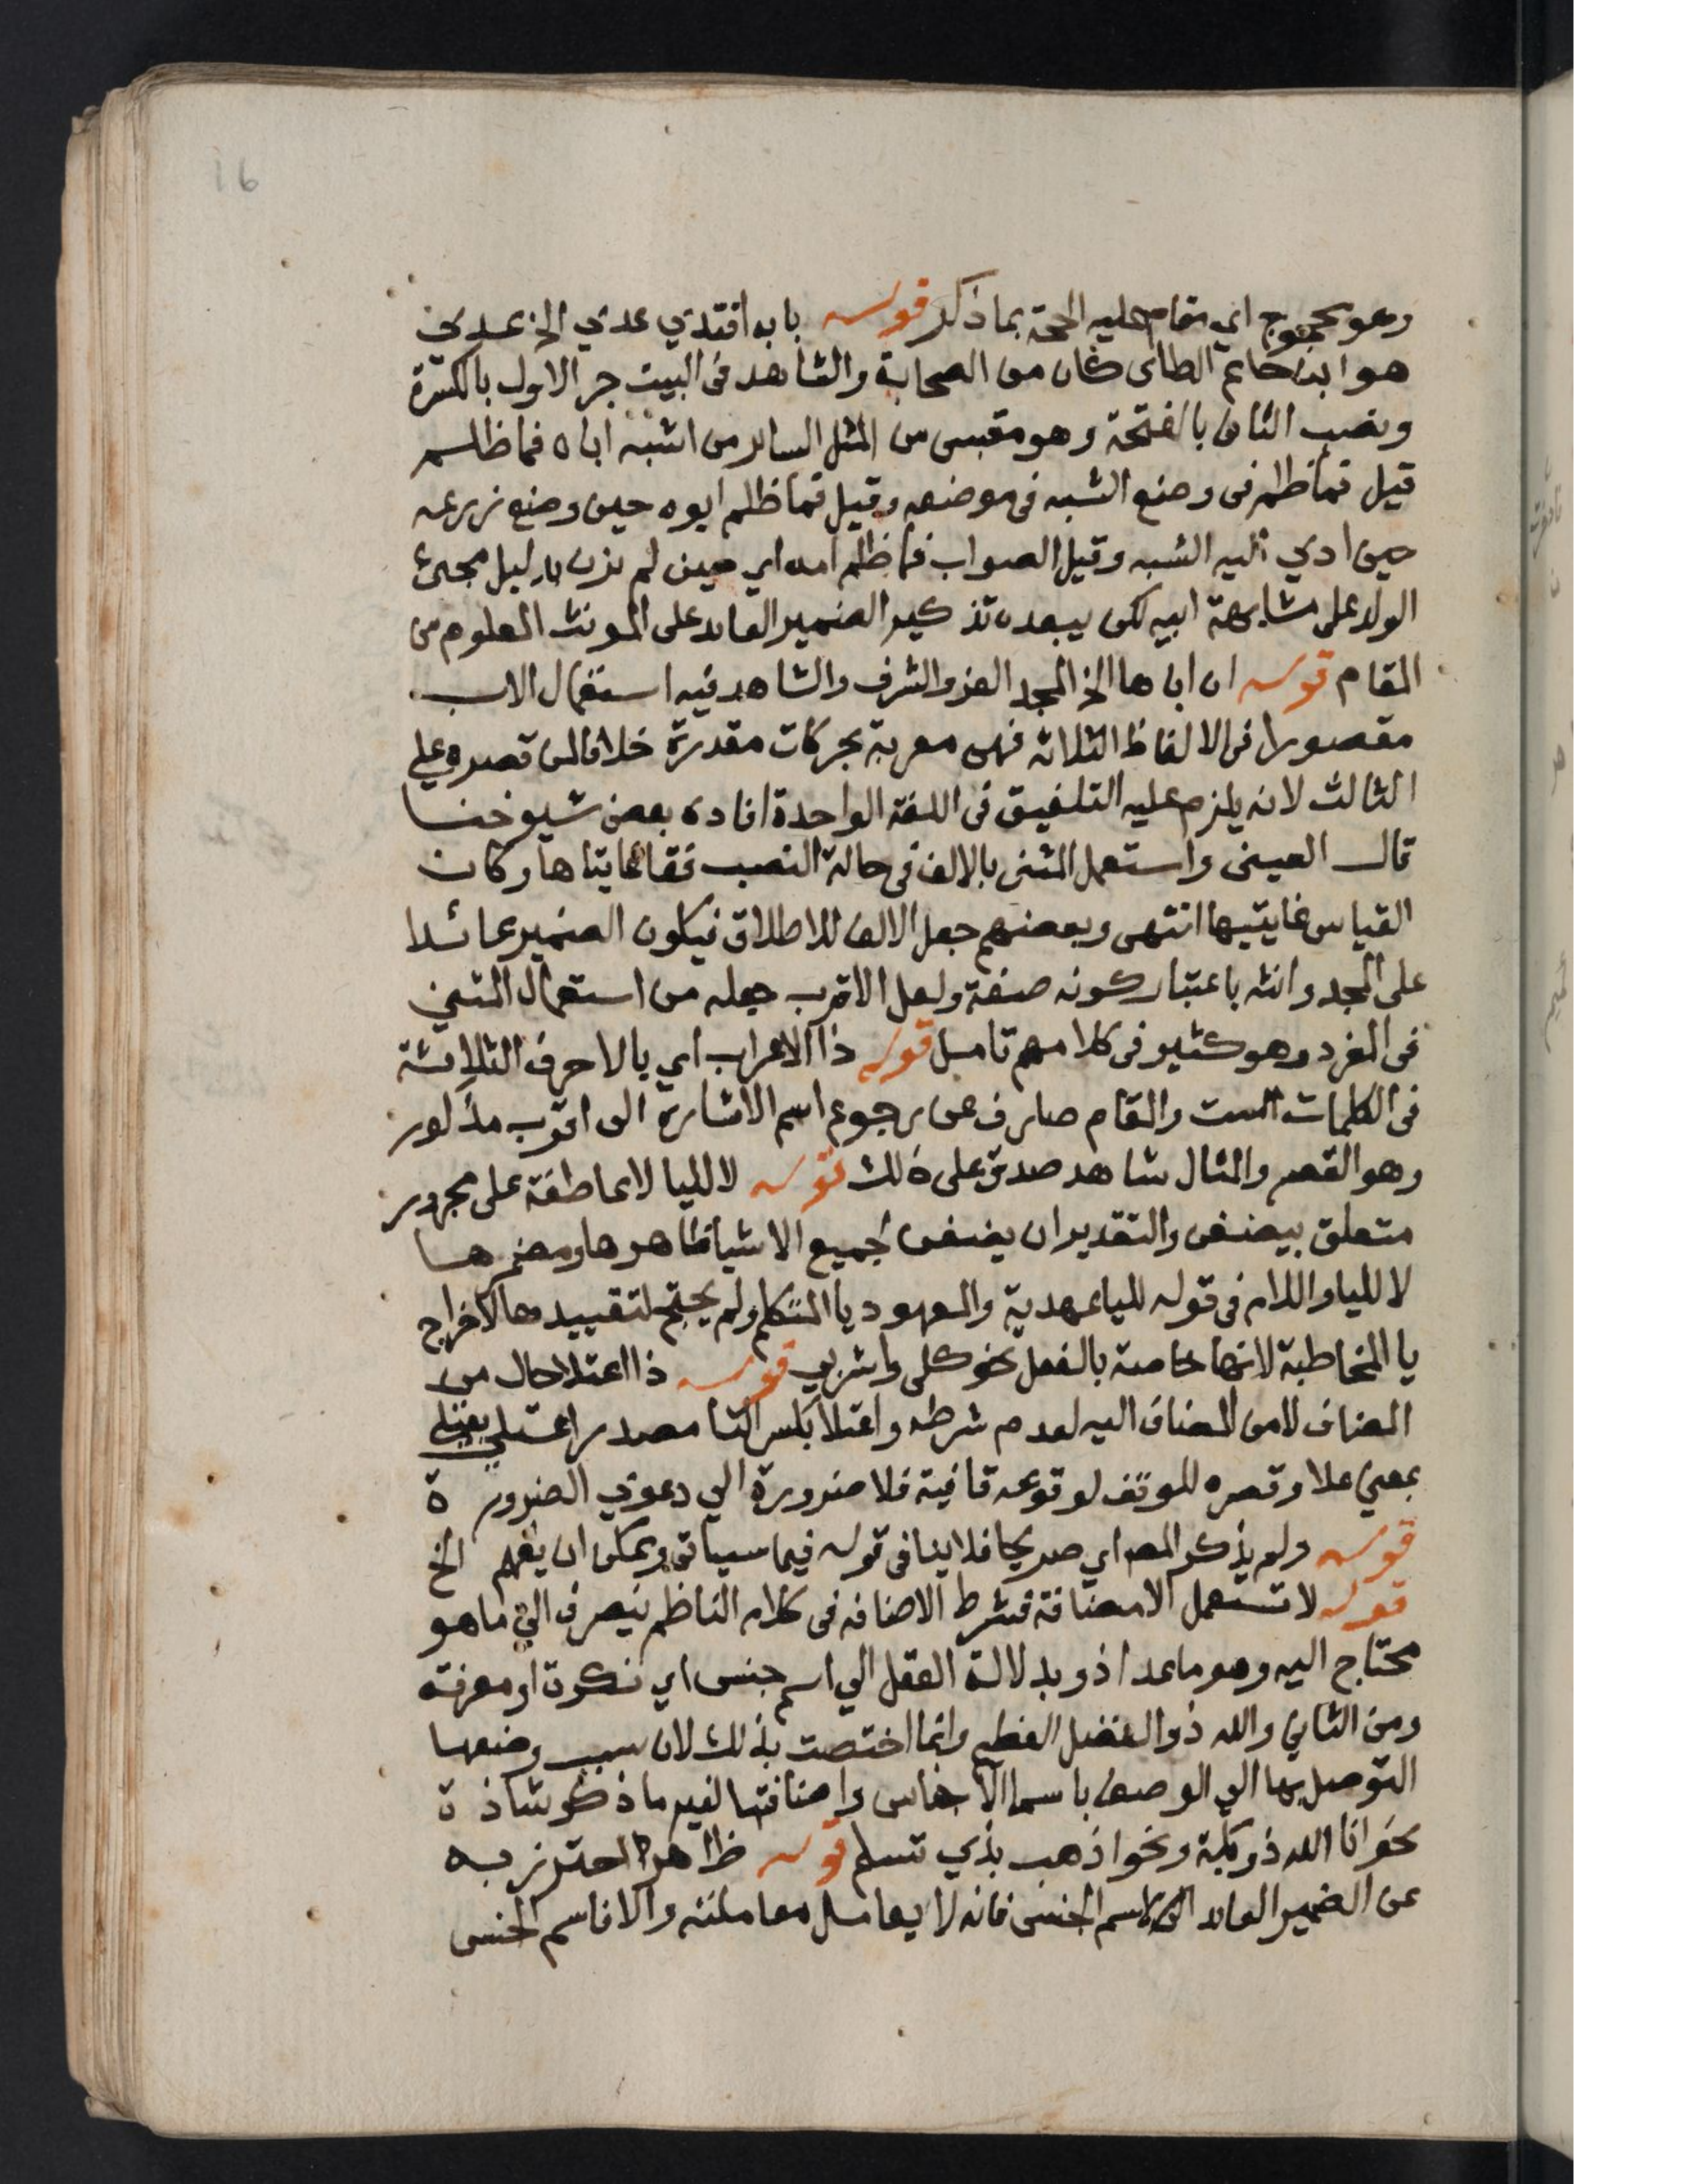 16
وهو محجوج اي مقام عليه الحجة بما ذكر قوله بابه اقتدي عدي الخ عدي
هو ابن حاتم الطاى كان من الصحابة والشاهد فى البيت جر الاول بالكسرة
ونصب الثانى بالفتحة وهو مقبس من المثل الساير من اشبه اباه فما ظلم
قيل فما ظلم فى وضع الشبه فى موضعه وقيل فما ظلم ابوه حين وضع زرعه
حين ادي اليه الشبه وقيل الصواب فما ظلم امه اي حين لم تزن بدليل مجئ
الولد على مشابهة ابيه لكن يبعده تذكير الضمير العايد على المونث المعلوم من
المقام قوله ان اباها الخ المجد العز والشرف والشاهد فيه استعمال الاب
مقصورا فى الالفاظ الثلاثه فهى معربة بحركات مقدرة خلافا لمن قصره على
الثالث لانه يلزم عليه التلفيق فى اللغة الواحدة افاده بعض شيوخنا
قال العينى واستعمل المثنى بالالف فى حالة النصب فقال غايتاها وكان
القياس غايتيها انتهى وبعضهم جعل الالف للاطلاق فيكون الضمير عائدا
على المجد وانثه باعتبار كونه صفة ولعل الاقرب جعله من استعمال المثنى
فى المفرد وهو كثير فى كلامهم تامل قوله ذا الاعراب اي بالاحرف الثلاثة
فى الكلمات الست والمقام صارف عن رجوع اسم الاشارة الى اقرب مذكور
وهو القصر والمثال شاهد صدق على ذلك قوله لا لليا لا عاطفة على مجرور
متعلق بيضفن والتقدير ان يضفن لجميع الاشيا ظاهرها ومضمرها
لا لليا واللام فى قوله لليا عهدية والمعهود يا المتكلم ولم يحتج لتقييدها لاخراج
يا المخاطبة لانها خاصة بالفعل نحو كلى واشربي قوله ذا اعتلا حال من
المضاف لا من المضاف اليه لعدم شرطه واعتلا بكسر التا مصدر اعتلى يعتلي
بمعني علا وقصره للوقف لوقوعه قافية فلا ضرورة الي دعوي الضرورة
قوله ولم يذكر المصـ اي صريحا فلا ينافى قوله فيما سياتى ويمكن ان يفهم الخ
قوله لا تستعمل الا مضافة فشرط الاضافه فى كلام الناظم ينصرف الي ما هو
محتاج اليه وهو ما عدا ذو بدلالة العقل الي اسم جنس اي نكرة او معرفة
ومن الثاني والله ذو الفضل العظيم وانما اختصت بذلك لان سبب وضعها
التوصل بها الى الوصف باسما الاجناس واضافتها لغير ما ذكر شاذة
نحو انا الله ذو بكة ونحو اذهب بذي تسلم قوله ظاهرا احترز به
عن الضمير العايد الى اسم الجنس فانه لا يعامل معاملته والا فاسم الجنس